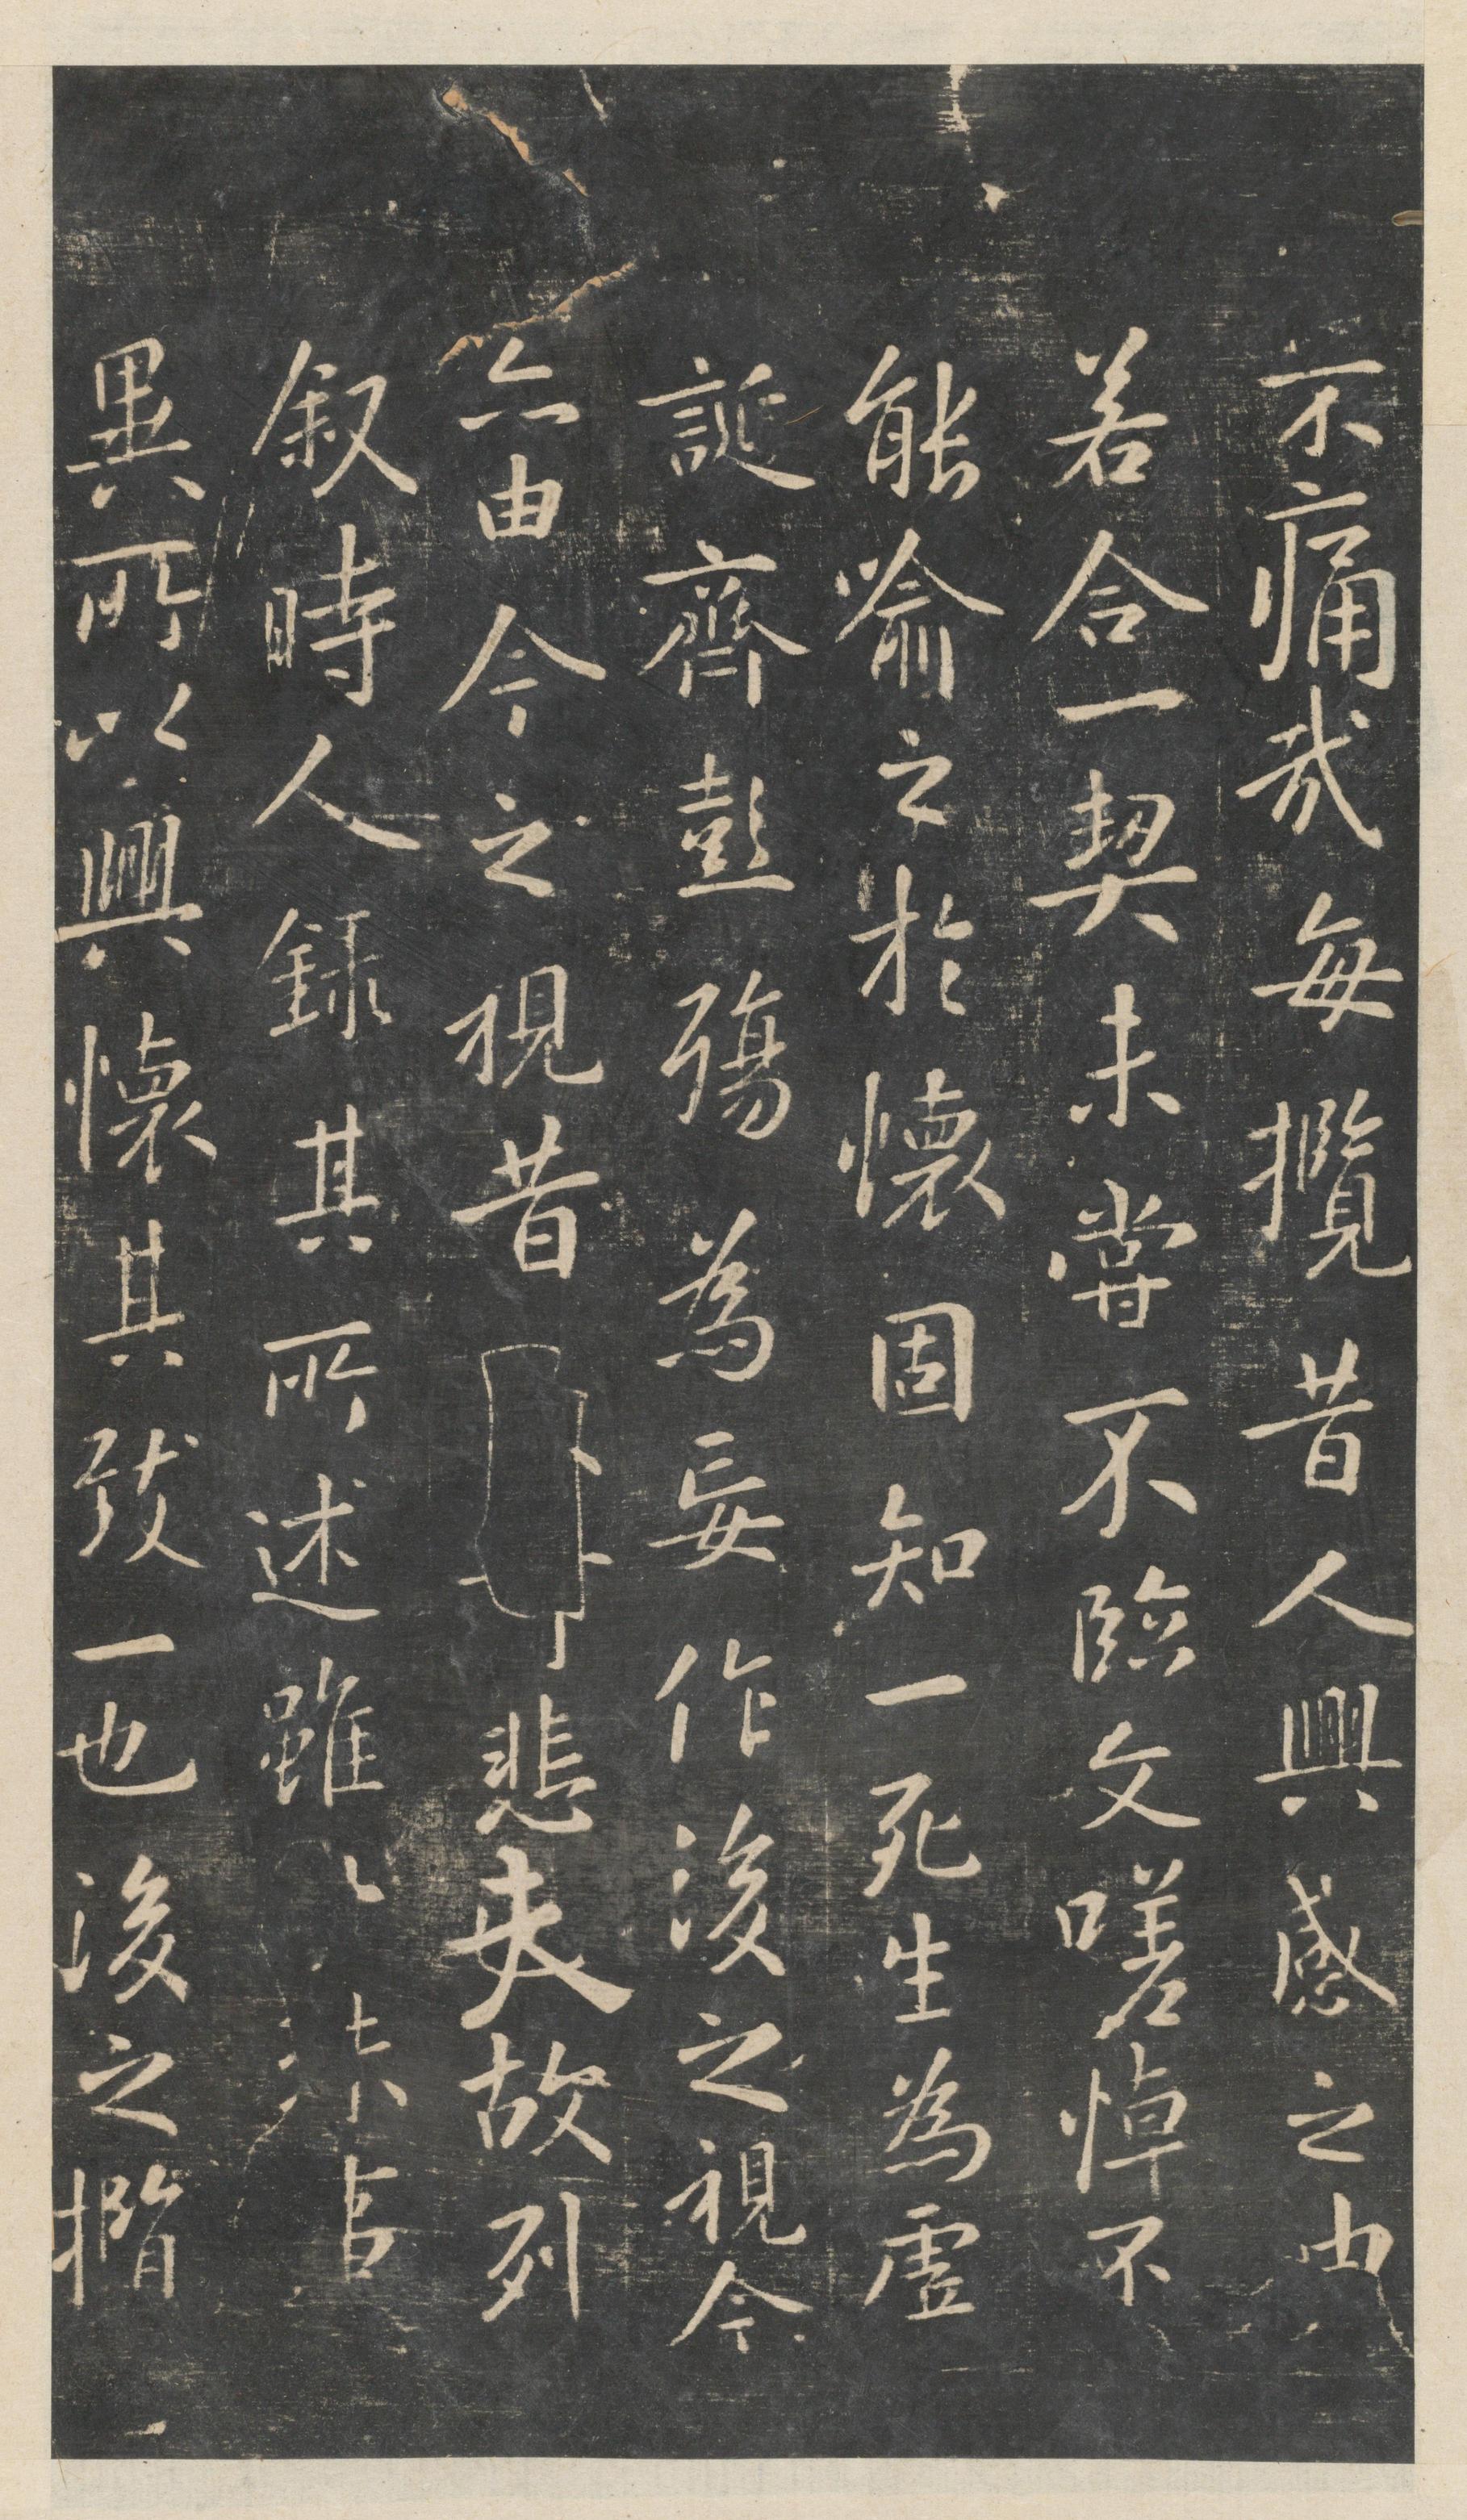 不痛哉每攬昔人興感之由
若合一契未嘗不臨文嗟悼不
能喻之於懷固知一死生為虛
誕齊彭殤為妄作後之視今
亦由今之視昔悲夫故列
叙時人錄其所述雖
異所以興懷其致一也後之攬